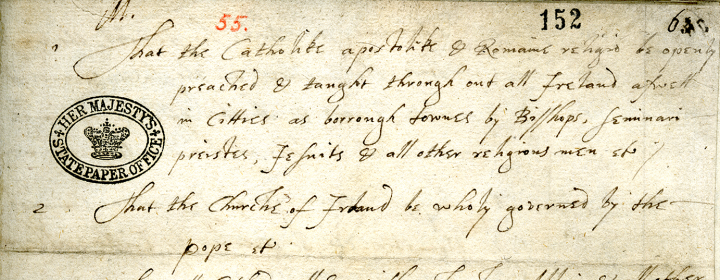 55.
152
1 That the Catholike apostolike & Romane religiō be openly
preached & taught through out all Ireland aswell
in Citties as borrough townes by Bisshops, seminari
preistes, Jesuits & all other religious men &c
HER MAJESTY'S
STATE PAPER OFFICE
2 That the Churche of Ireland be wholy governed by the
pope &c